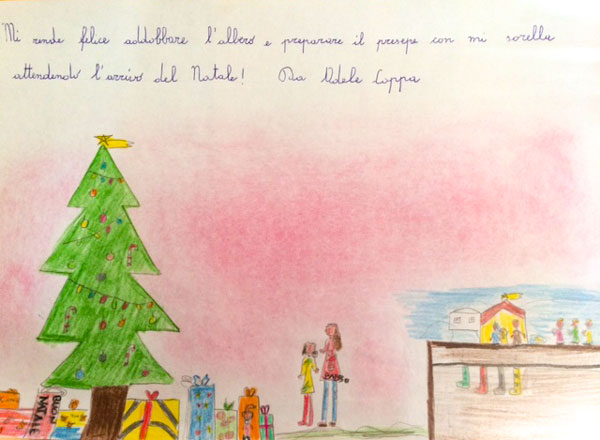 Mi rende felice addobbare l'albero e preparare il presepe con mi sorella
attendendo l'arrivo del Natale! Da Adele Coppa
BUON
NATALE